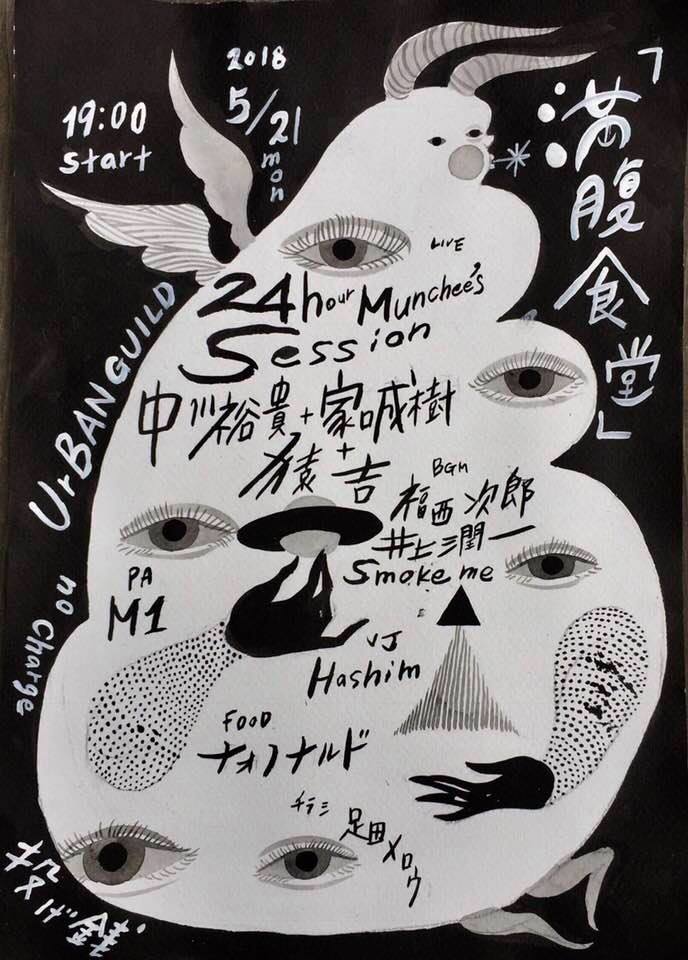 「満腹食堂」
2018
5/21
mon
19:00
start
LIVE
24hour Munchee's
Session
中川裕貴+家喊樹
+
猿吉
BGM
福西次郎
井上潤一
Smoke me
UrBANGUILD
no charge
PA
M1
VJ
Hashim
FOOD
ナオノナルド
チラミ
足田メロウ
投げ銭